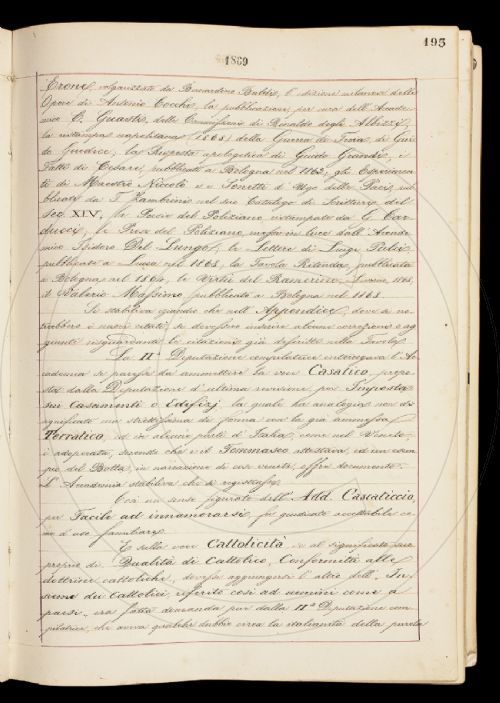 195
1869
Erone, volgarizzato da Bernardino Baldi, l'edizione milanese delle
Opere di Antonio Cocchi, la pubblicazione, per cura dell'Accade-
mico C. Guasti, delle Commissioni di Rinaldo degli Albizzi,
la ristampa napoletana (1868) della Guerra di Troia, di Gui-
do Giudice, la Risposta apologetica di Guido Grandi, i
Fatti di Cesare, pubblicati a Bologna nel 1862, gli
ti di Maestro Niccolò e i Sonetti d'Ugo delle Paci, pub-
blicati da F. Zambrini nel suo Catalogo di Scritture del
Sec. XIV, le Poesie del Poliziano ristampate da G. Car-
ducci, le Prose del Poliziano, messe in luce dall'Accade-
mico Isidoro Del Lungo, le Lettere di Luigi Pulci
pubblicate a Lucca nel 1868, la Tavola Ritonda, pubblicata
a Bologna nel 1864, le Virtù del Ramerino, Livorno, 1868,
il Valerio Massimo pubblicato a Bologna nel 1868.
Si stabiliva quindi che nell'Appendice, dove si no-
terebbero i nuovi citati, si dovessero inserire alcune correzioni e ag-
giunte risguardanti le citazioni già descritte nella Tavola.
La IIª Deputazione compilatrice interrogava l'Ac-
cademia se paresse da ammettere la voce Casatico, propo-
sta dalla Deputazione d'ultima revisione per Imposta
sui Casamenti o Edifizj, la quale ha analogia non di
significato ma strettissima di forma con la già ammessa
Terratico, ed in alcune parti d'Italia, come nel Veneto,
è adoperata, secondo che e il Tommaseo attestava, ed un esem-
pio del Botta, in narrazione di cose venete, offre documento.
L'Accademia stabiliva che si registrasse.
Così un senso figurato dell'Add. Cascaticcio,
per Facile ad innamorarsi, fu giudicato accettabile co-
me d'uso familiare.
E sulla voce Cattolicità, se al significato suo
proprio di Qualità di Cattolico, Conformità alle
dottrine cattoliche, dovesse aggiungersi l'altro dell'In-
sieme dei Cattolici, riferito così ad uomini come a
paesi, era fatta domanda pur dalla IIª Deputazione com-
pilatrice, che aveva qualche dubbio circa la italianità della parola